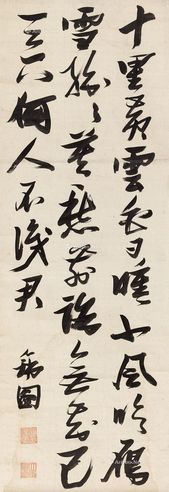 十里黄雲白日曛北風吹雁
雪紛々莫愁前路無知己
天下何人不識君